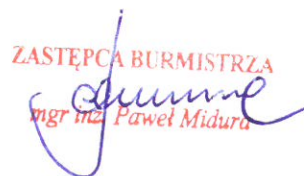 ZASTĘPCA BURMISTRZA
mgr inż. Paweł Midura